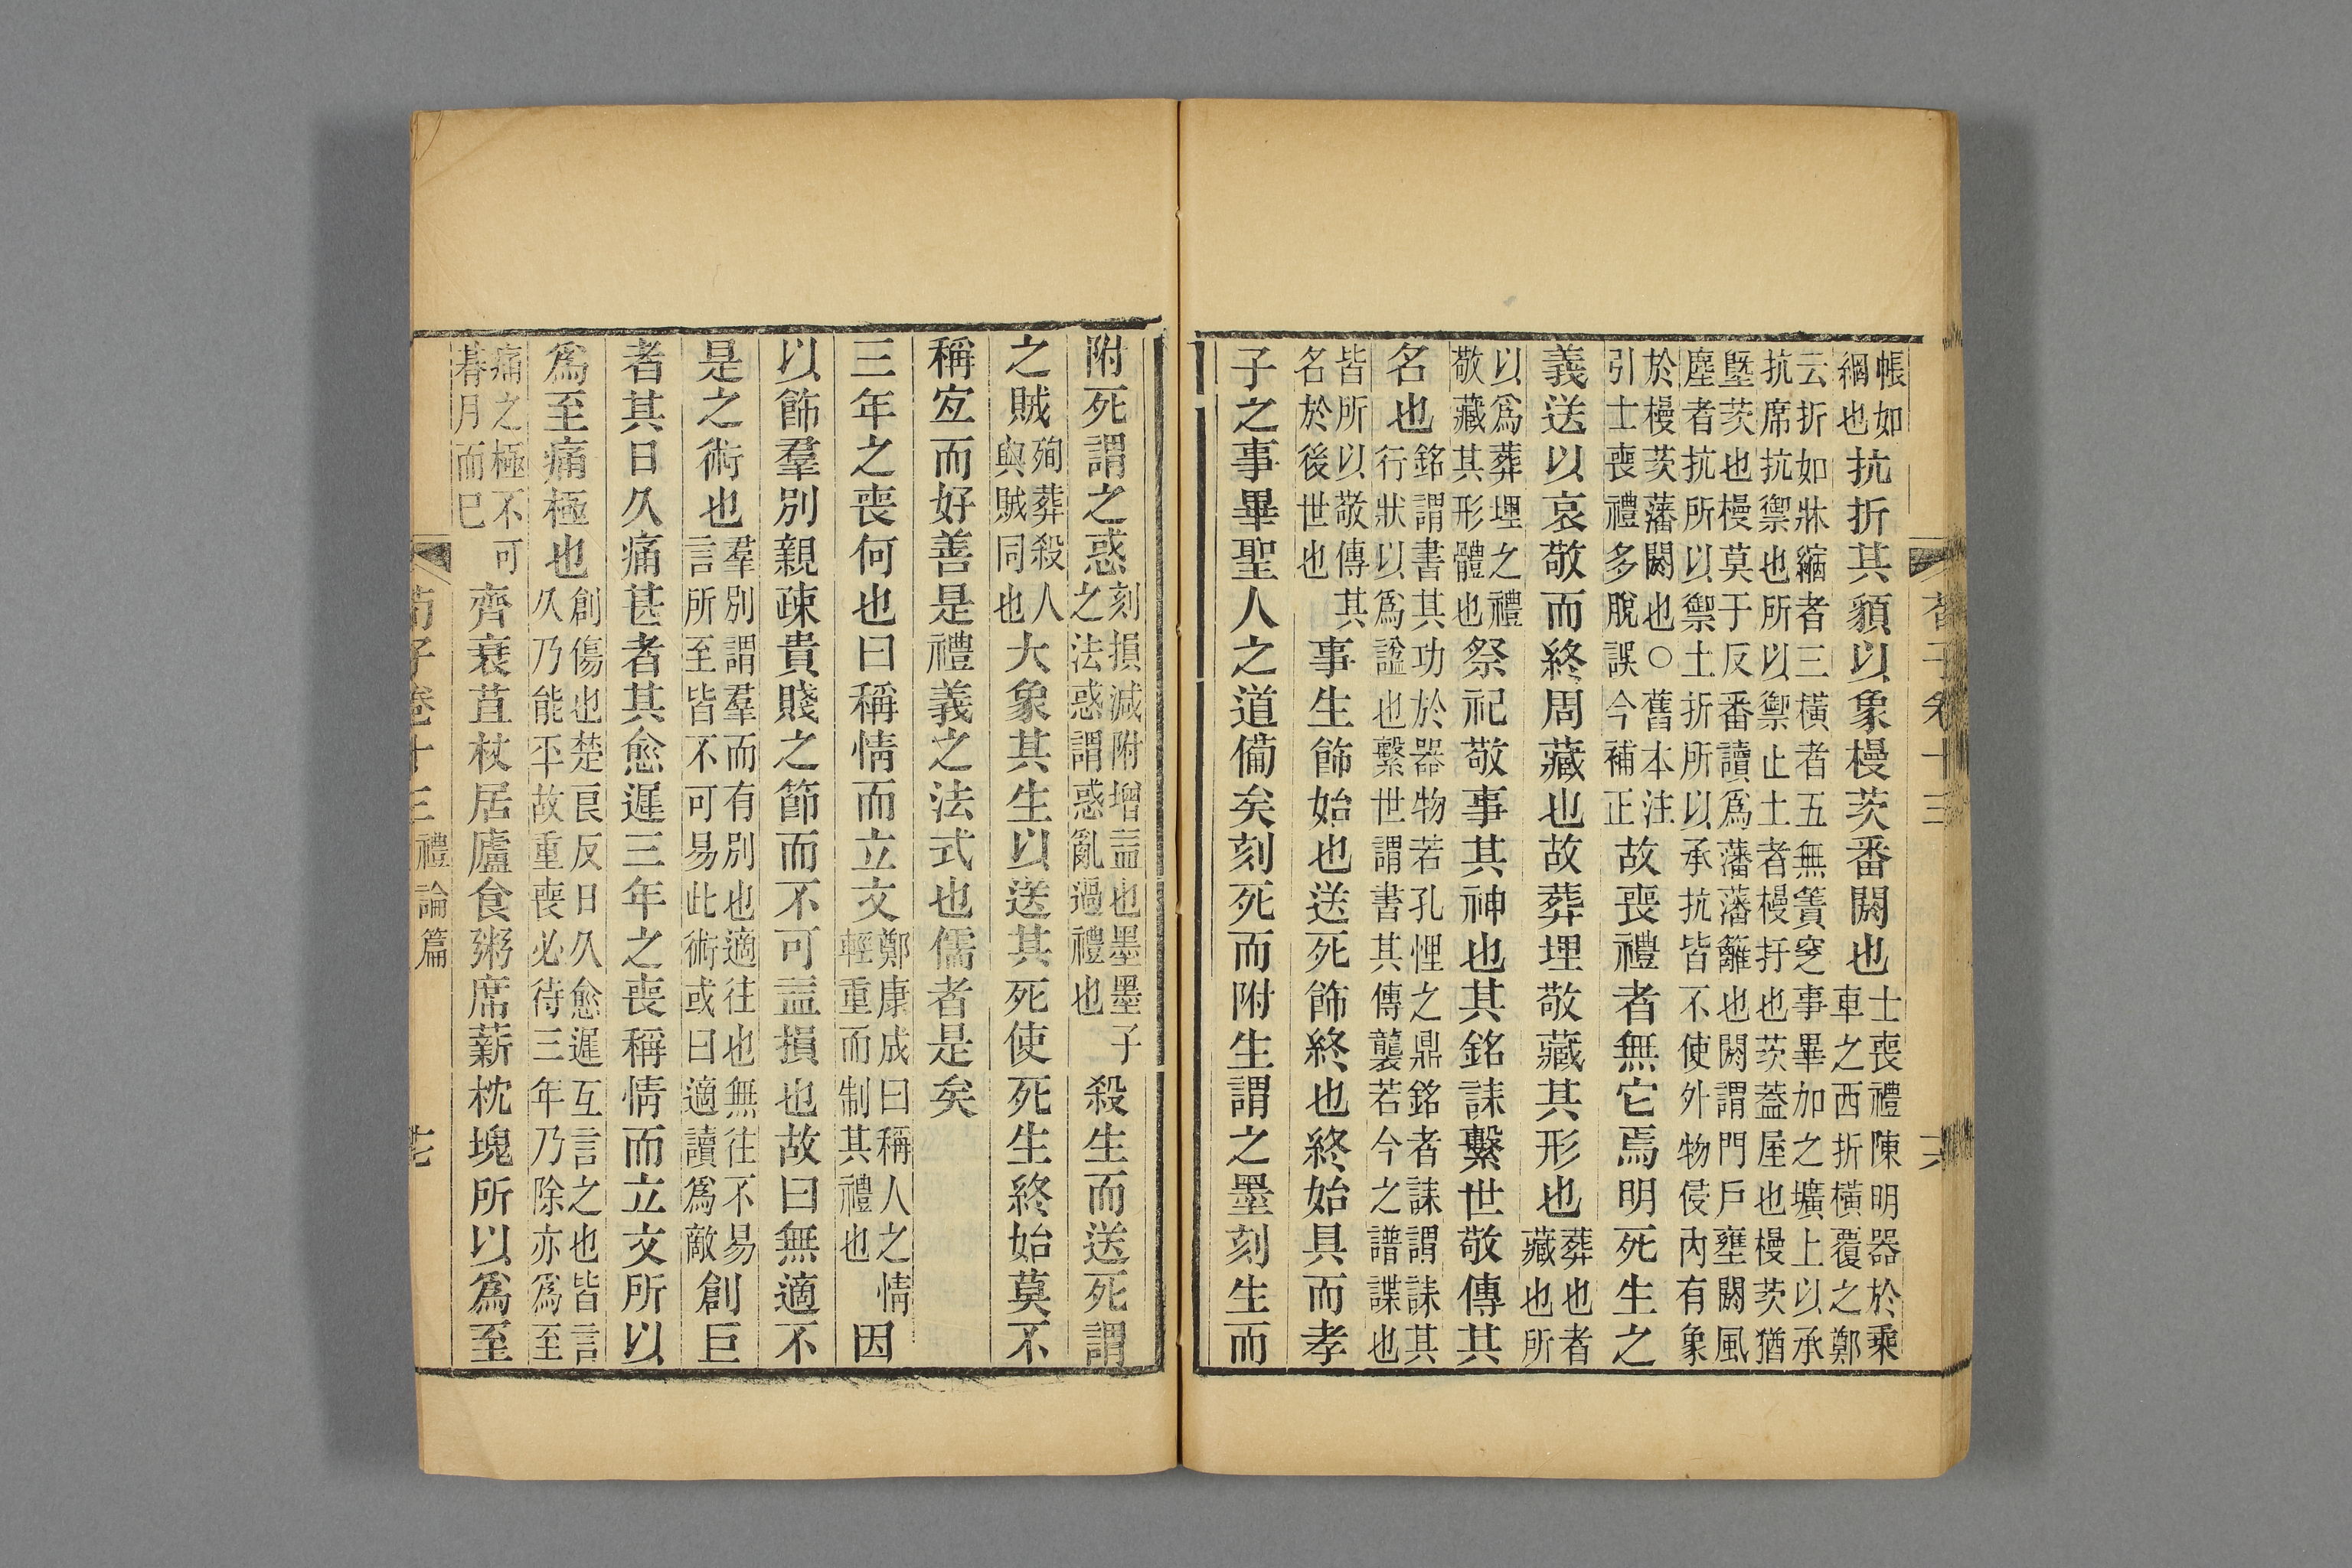 荀子卷十三
帳如綱也抗折其䫉以象槾茨番閼也士喪禮陳明器於乘車之西折橫覆之鄭
云折如牀縮者三橫者五無簀窆事畢加之壙上以承抗席抗禦也所以禦止土者槾扜也茨蓋屋也槾茨猶
塈茨也槾莫于反番讀爲藩藩籬也閼謂門戶壅閼風塵者抗所以禦土折所以承抗皆不使外物侵內有象
於槾茨藩閼也○舊本注引士喪禮多脫誤今補正故喪禮者無它焉明死生之
義送以哀敬而終周藏也故葬埋敬藏其形也葬也者藏也所
以爲葬埋之禮敬藏其形體也祭祀敬事其神也其銘誄繫世敬傳其
名也銘謂書其功於器物若孔悝之鼎銘者誄謂誄其行狀以爲諡也繫世謂書其傳襲若今之譜諜也
皆所以敬傳其名於後世也事生飾始也送死飾終也終始具而孝
子之事畢聖人之道備矣刻死而附生謂之墨刻生而
附死謂之惑刻損減附增益也墨墨子之法惑謂惑亂過禮也殺生而送死謂
之賊殉葬殺人與賊同也大象其生以送其死使死生終始莫不
稱宜而好善是禮義之法式也儒者是矣
三年之喪何也曰稱情而立文鄭康成曰稱人之情輕重而制其禮也因
以飾羣別親疎貴賤之節而不可益損也故曰無適不
是之術也羣別謂羣而有別也適往也無往不易言所至皆不可易此術或曰適讀爲敵創巨
者其日久痛甚者其愈遲三年之喪稱情而立文所以
爲至痛極也創傷也楚良反日久愈遲互言之也皆言久乃能平故重喪必待三年乃除亦爲至
痛之極不可朞月而已齊衰苴杖居廬食粥席薪枕塊所以爲至
荀子卷十三 禮論篇 七